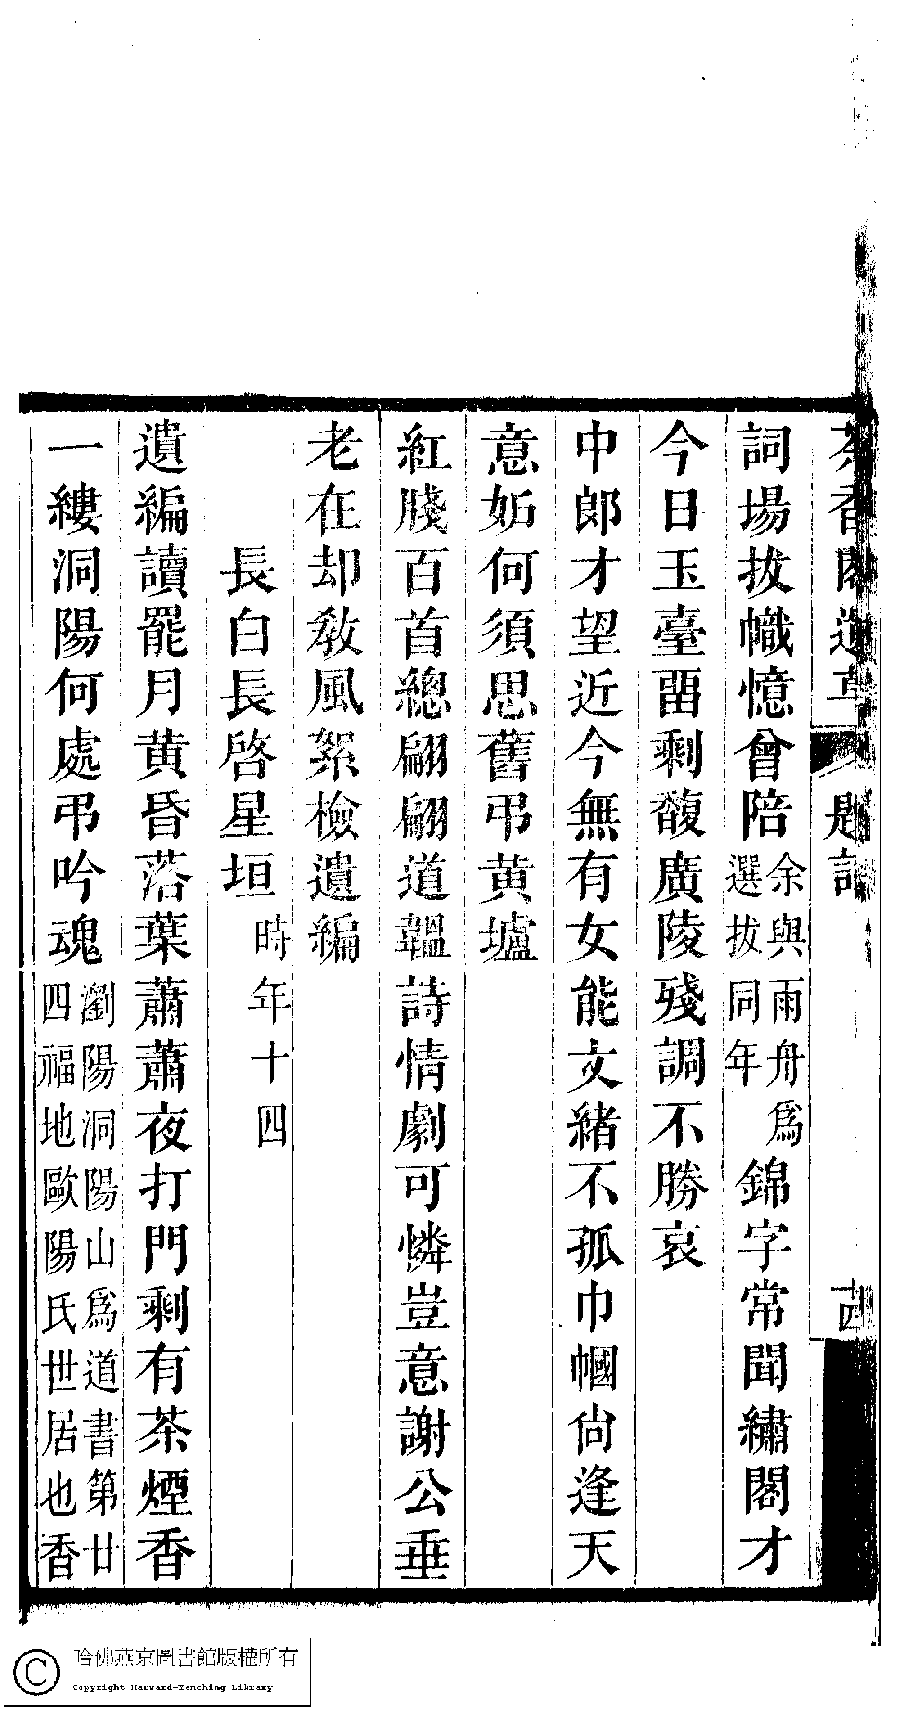 茶香閣遺草 題詞 十四
詞場拔幟憶曾陪余與雨舟爲選拔同年錦字常聞繡閣才
今日玉臺畱剩馥廣陵殘調不勝哀
中郞才望近今無有女能文緖不孤巾幗尙逢天
意妬何須思舊弔黃壚
紅牋百首總翩翩道韞詩情劇可憐豈意謝公垂
老在却敎風絮檢遺編
長白長啓星垣時年十四
遺編讀罷月黃昏落葉蕭蕭夜打門剩有茶煙香
一縷洞陽何處弔吟魂瀏陽洞陽山爲道書第廿四福地歐陽氏世居也香
哈佛燕京圖書館版權所有
Copyright Harvard-Yenching Library